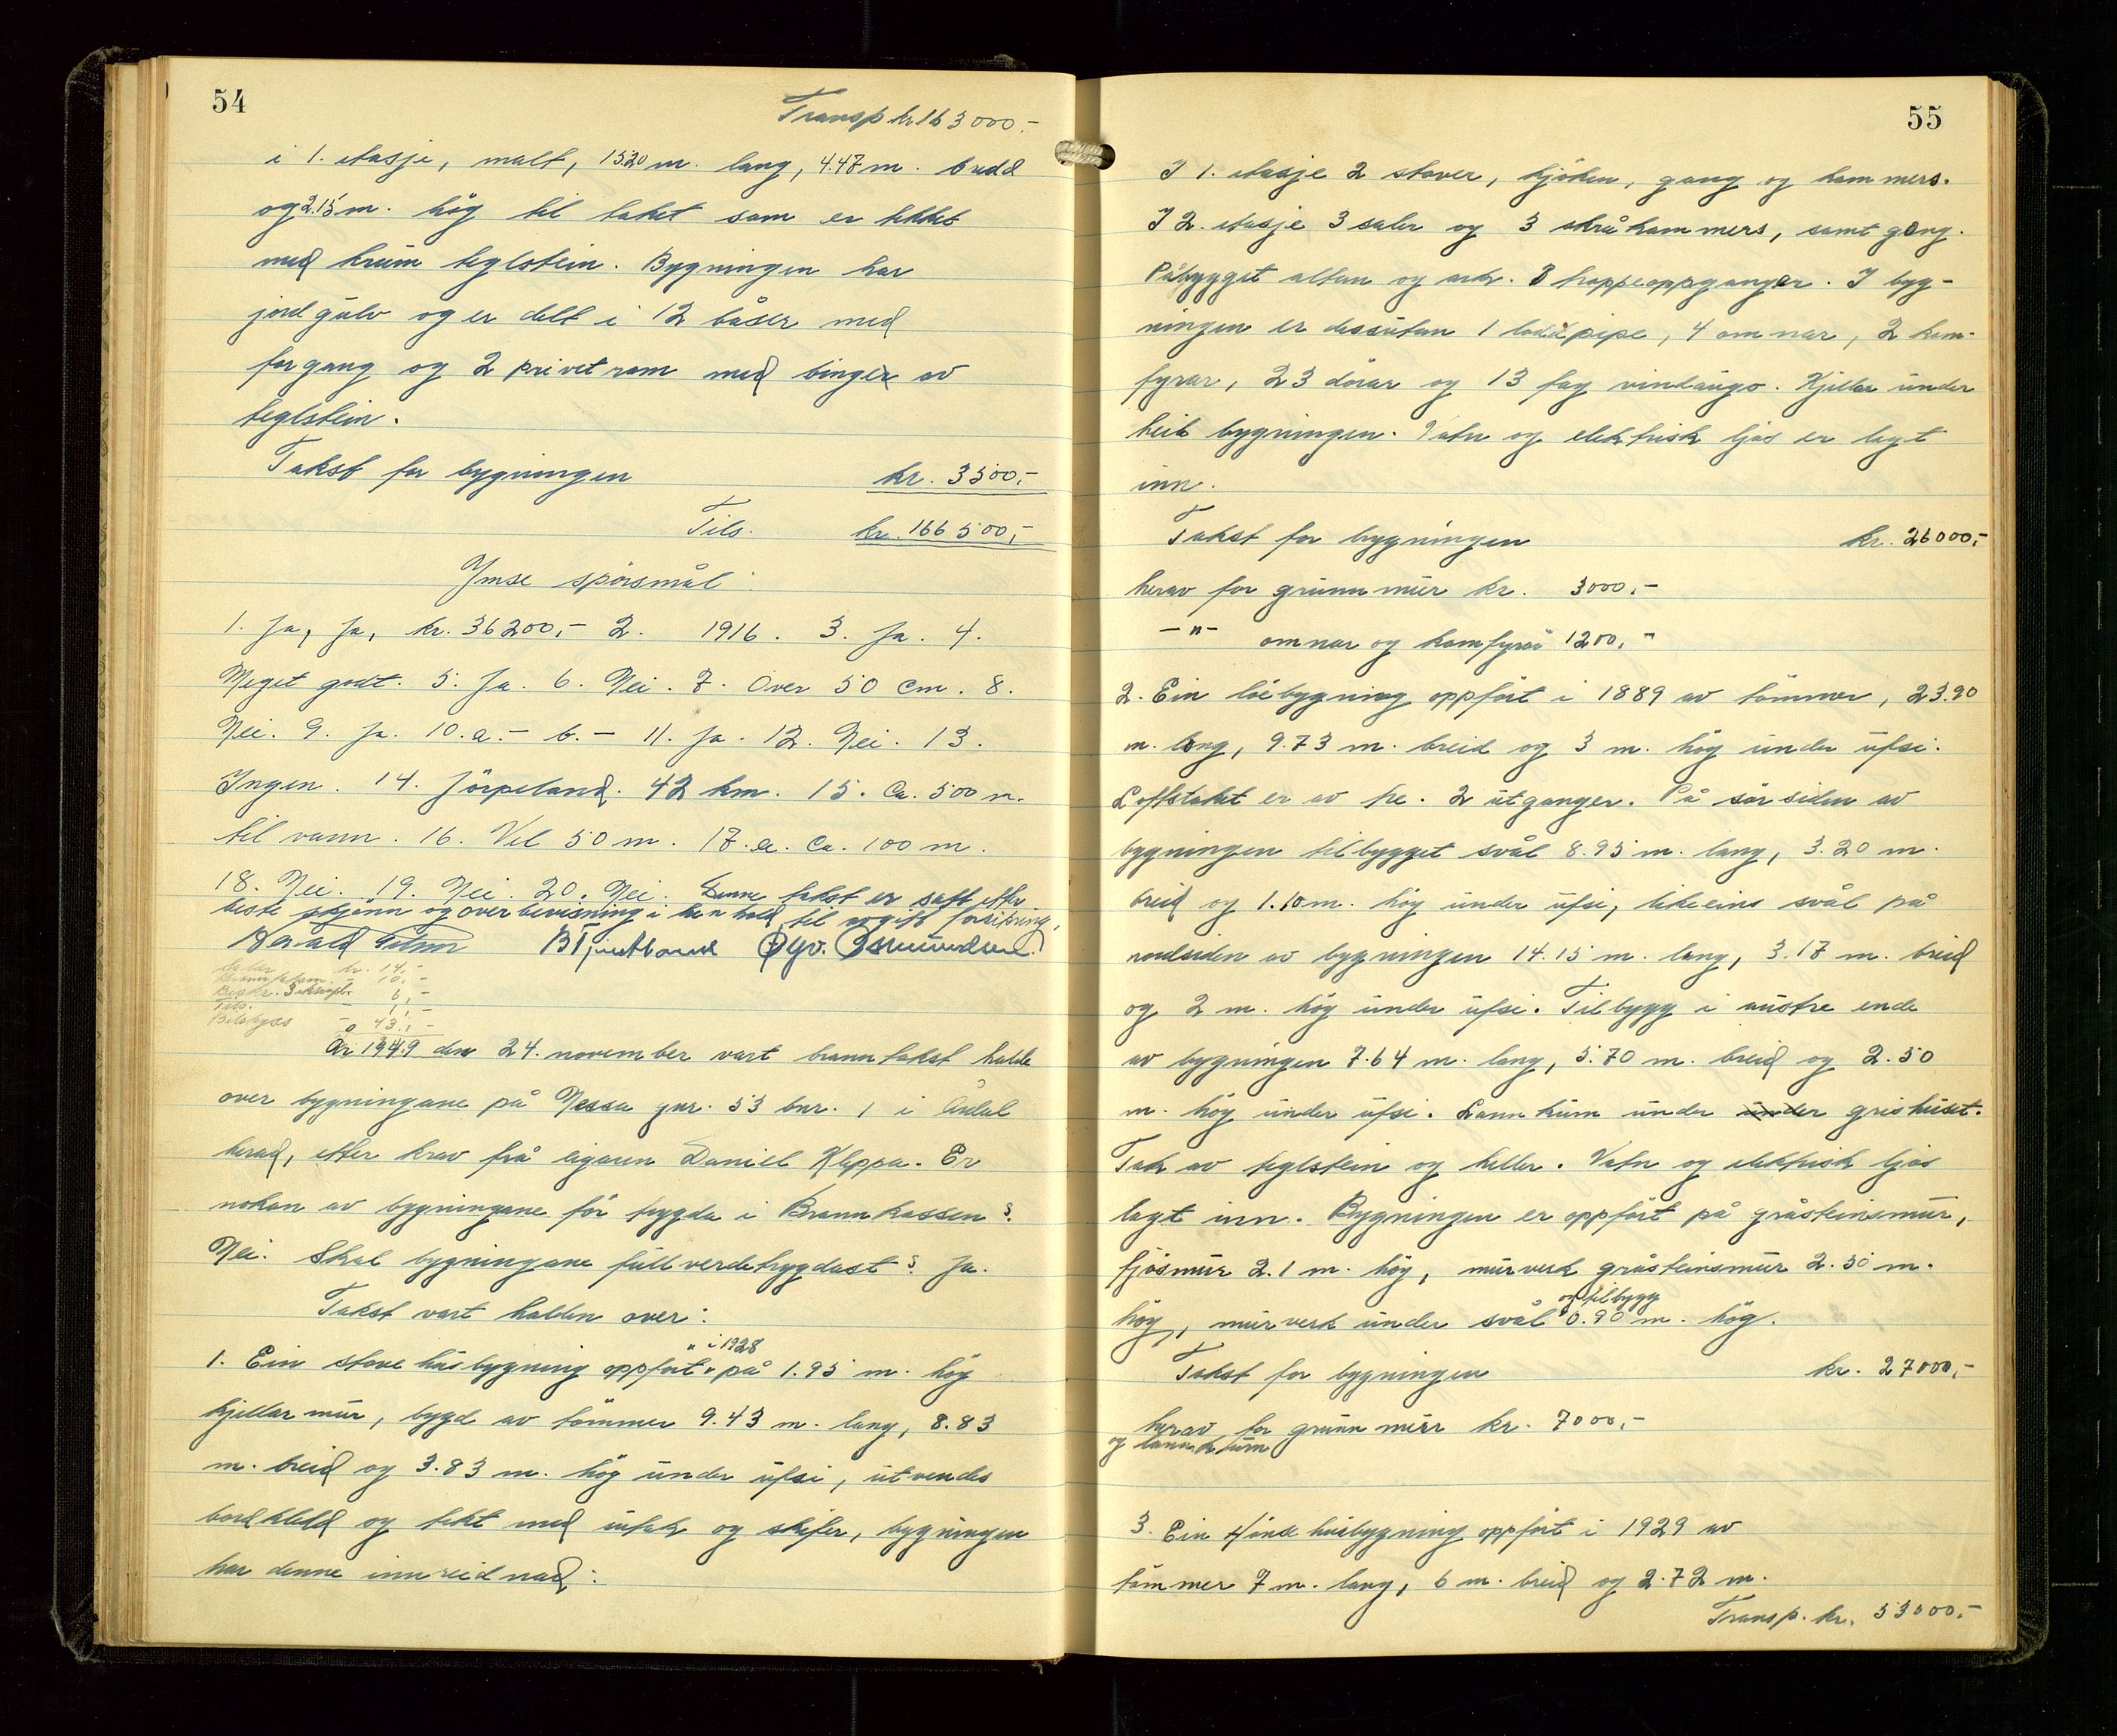 54
Transp kr 163000.-
i 1. etasje, malt, 15.20 m. lang, 4.47 m. bredd
og 2.15 m. høg til taket som er tekket
med krum teglstein. Bygningen har
jordgulv og er delt i 12 båser med
forgang og 2 privet rom med binger av
teglstein.
Takst for bygningen kr. 3500,-
Tils. kr. 166500,-
Ymse spørsmål:
1. Ja, Ja, kr. 36200,- 2. 1916. 3. Ja. 4.
Meget godt. 5. Ja. 6. Nei. 7. Over 50 cm. 8.
Nei. 9. Ja. 10. a. - b. - 11. Ja. 12. Nei. 13.
Ingen. 14. Jørpeland. 42 km. 15. Ca. 500 m.
til vann. 16. Vel 50 m. 17. a. Ca. 100 m.
18. Nei. 19. Nei. 20. Nei. Denne takst er satt etter
beste skjønn og overbevisning i henhold til avgitt forsikring.
Harald B Tjentland Ogv. Osmundsen.
kr. 14,-
10,-
Beskr. 3 eksempl. 6,-
Tels. - 1,-
Bilskyss - 43,-
År 1949 den 24. november vart branntakst halde
over bygningane på Nessa gnr. 53 bnr. 1 i Årdal
herad, etter krav frå eigaren Daniel Kleppa. Er
nokon av bygningane før trygda i Brannkassen?
Nei. Skal bygningane fullverdetrygdast? Ja.
Takst vart halden over:
" i 1928
1. Ein stovehusbygning oppført " på 1.95 m. høg
kjellarmur, bygd av tømmer 9.43 m. lang, 8.83
m. breid og 3.83 m. høg under ufsi, utvendes
bordkledd og tekt med utak og skifer, bygningen
har denne innreidnad:
55
I 1. etasje 2 stover, kjøken, gang og kammers.
I 2. etasje 3 saler og 3 skråkammers, samt gang.
Påbygget altan og ark. 3 trappeoppganger. I byg-
ningen er dessutan 1 loddpipe, 4 omnar, 2 kom-
fyrar, 23 dørar og 13 fag vindaugo. Kjellar under
heile bygningen. Vatn og elektrisk ljos er lagt
inn.
Takst for bygningen kr. 26000,-
herav for grunnmur kr. 3000,-
- " - omnar og komfyrar 1200,-
2. Ein løebygning oppført i 1889 av tømmer, 23.90
m. long, 9.73 m. breid og 3 m. høg under ufsi.
Loftstaket er av tre. 2 utganger. På sørsiden av
bygningen tilbygget svål 8.95 m. lang, 3.20 m.
breid og 1.10 m. høg under ufsi, likeeins svål på
nordsiden av bygningen 14.15 m. lang, 3.17 m. breid
og 2 m. høg under ufsi. Tilbygg i austre ende
av bygningen 7.64 m. lang, 5.70 m. breid og 2.50
m. høg under ufsi. Lannkum under under grishuset.
Tak av teglstein og heller. Vatn og elektrisk ljos
lagt inn. Bygningen er oppført på gråsteinsmur,
fjøsmur 2.1 m. høg, murverk gråsteinsmur 2.50 m.
og tilbygg
høg, murverk under svål 0.90 m. høg.
Takst for bygningen kr. 27000,-
herav for grunnmur kr. 7000,-
og lannkum
3. Ein eldhusbygning oppført i 1929 av
tømmer 7 m. lang, 6 m. breid og 2.72 m.
Transp. kr. 53000.-